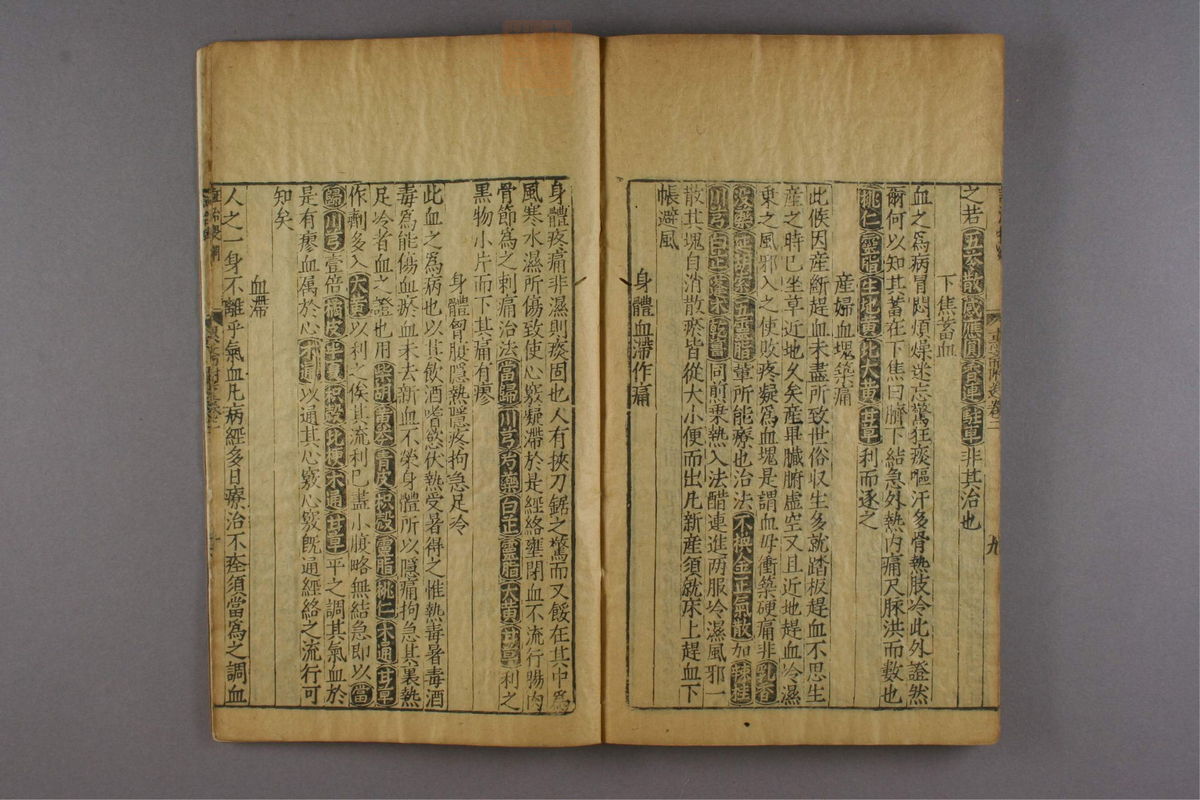 之若五苓散感應圓黄連駐車非其治也
下焦蓄血
血之爲病胃悶煩燥迷忘驚狂痰嘔汗多骨熱肢冷此外證然
爾何以知其蓄在下焦曰臍下結急外熱内痛尺脉洪而數也
桃仁靈脂生地黄北大黄甘草利而逐之
産婦血塊築痛
此候因産斷趕血未盡所致世俗収生多就踏板趕血不思生
産之時已坐草近地久矣産畢臓腑虚空又且近地趕血冷濕
東之風邪入之使敗疼疑爲血塊是謂血母衝築硬痛非乳香
没藥延胡索五靈脂軰所能療也治法不換金正氣散加辣桂
川芎白芷莪朮乾薑同煎乗熱入法醋連進两服冷濕風邪一
散其塊自消散瘀皆從大小便而出凡新産須就床上趕血下
帳避風
身體血滯作痛
身體疼痛非濕則痰固也人有挾刀鋸之驚而又餒在其中爲
風寒水濕所傷致使心竅疑滯於是經絡壅閉血不流行腸肉
骨節爲之刺痛治法當歸川芎芍藥白芷靈脂大黄甘草利之
黒物小片而下其痛有瘳
身體胷腹隱熱隱疼拘急足冷
此血之爲病也以其飲酒嗜慾伏熱受暑得之惟熱毒暑毒酒
毒爲能傷血瘀血未去新血不榮身體所以隱痛拘急其裏熱
足冷者血之證也用柴胡黄芩青皮枳殻靈脂桃仁木通甘草
作劑多入大黄以利之俟其流利已盡小腹略無結急即以當
歸川芎壹倍橘皮半夏枳殻北梗木通甘草平之調其氣血於
是有瘳血属於心木通以通其心竅心竅旣通經絡之流行可
知矣
血滯
人之一身不離乎氣血凡病經多日療治不痊須當爲之調血